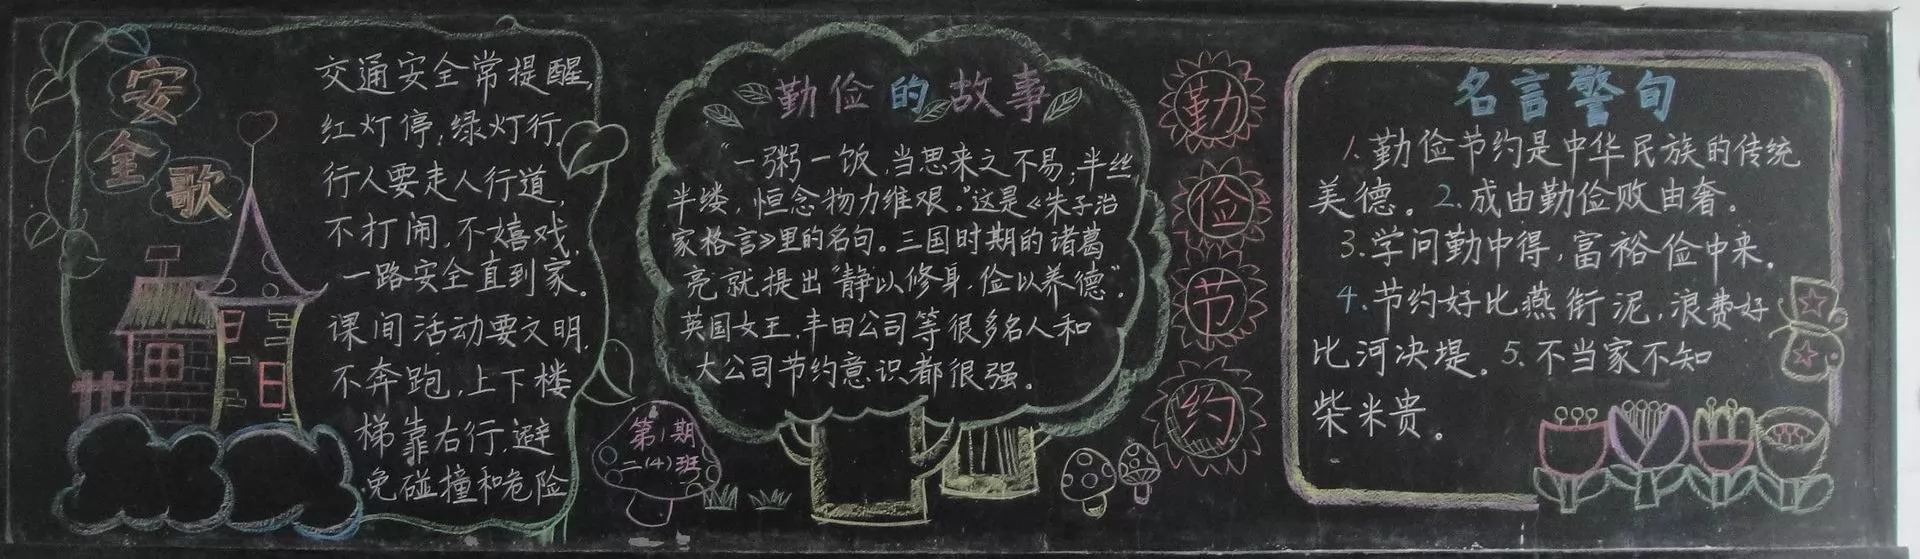 安全歌
交通安全常提醒,
红灯停,绿灯行.
行人要走人行道,
不打闹,不嬉戏,
一路安全直到家。
课间活动要文明,
不奔跑,上下楼
梯靠右行,避
免碰撞和危险
勤俭的故事
“一粥一饭,当思来之不易;半丝
半缕,恒念物力维艰。”这是《朱子治
家格言》里的名句。三国时期的诸葛
亮就提出“静以修身,俭以养德”。
英国女王,丰田公司等很多名人和
大公司节约意识都很强。
第1期
二(4)班
勤
俭
节
约
名言警句
1.勤俭节约是中华民族的传统
美德。2.成由勤俭败由奢。
3.学问勤中得,富裕俭中来.
4.节约好比燕衔泥,浪费好
比河决堤。5.不当家不知
柴米贵。